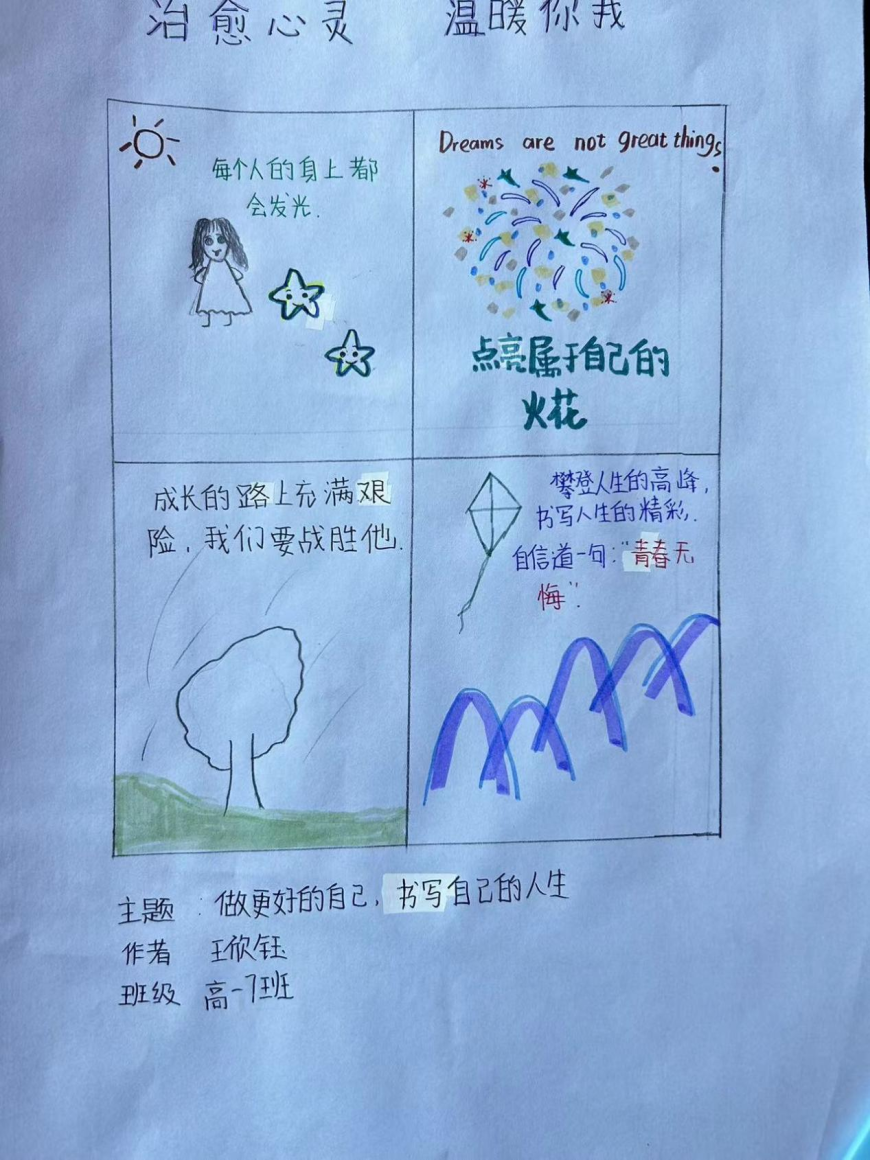 治愈心灵 温暖你我
每个人的身上都
会发光.
Dreams are not great things.
点亮属于自己的
火花
成长的路上充满艰
险，我们要战胜他.
攀登人生的高峰，
书写人生的精彩.
自信道一句："青春无
悔".
主题：做更好的自己，书写自己的人生
作者 王欣钰
班级 高一7班